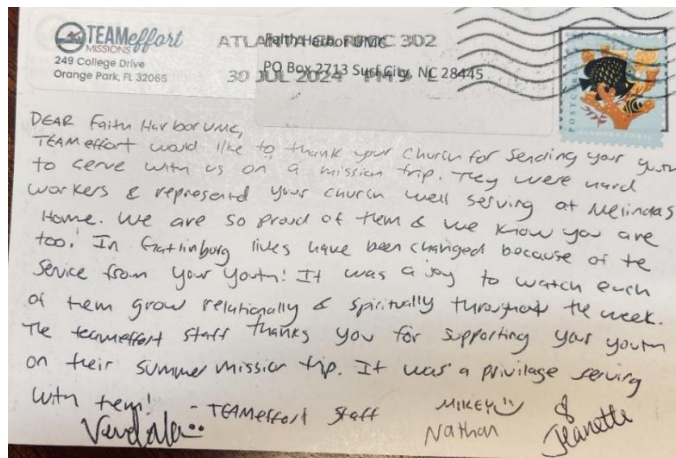 TEAMeffort
MISSIONS
249 College Drive
Orange Park, FL 32065
ATLANTA GA RPDC 302
30 JUL 2024 PM 9 L
Faith Harbor UMC
PO Box 2713 Surf City, NC 28445
DEAR Faith Harbor UMC,
TEAMeffort would like to thank your church for sending your youth
to serve with us on a mission trip. They were hard
workers & represented your church well serving at Melindas
Home. We are so proud of them & we know you are
too! In Gatlinburg lives have been changed because of the
service from your youth! It was a joy to watch each
of them grow relationally & spiritually throughout the week.
The teameffort staff thanks you for supporting your youth
on their summer mission trip. It was a privilage serving
with them! - TEAMeffort Staff
MIKEY
&
Nathan
Jeanette